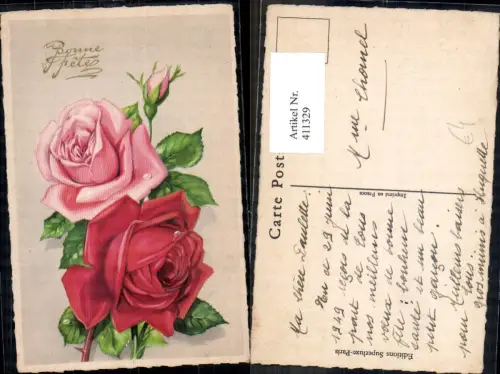 Bonne
Fête
Artikel Nr.
411329
Carte Post
Imprimé en France
Editions Superluxe-Paris
Mme Chomel
Ma chère Paulette
En ce 29 juin
1949 reçois de la
part de tous
nos meilleurs
vœux de bonne
fête : bonheur
santé et un beau
petit garçon.
pour
tous.
gros mimis à Huguette